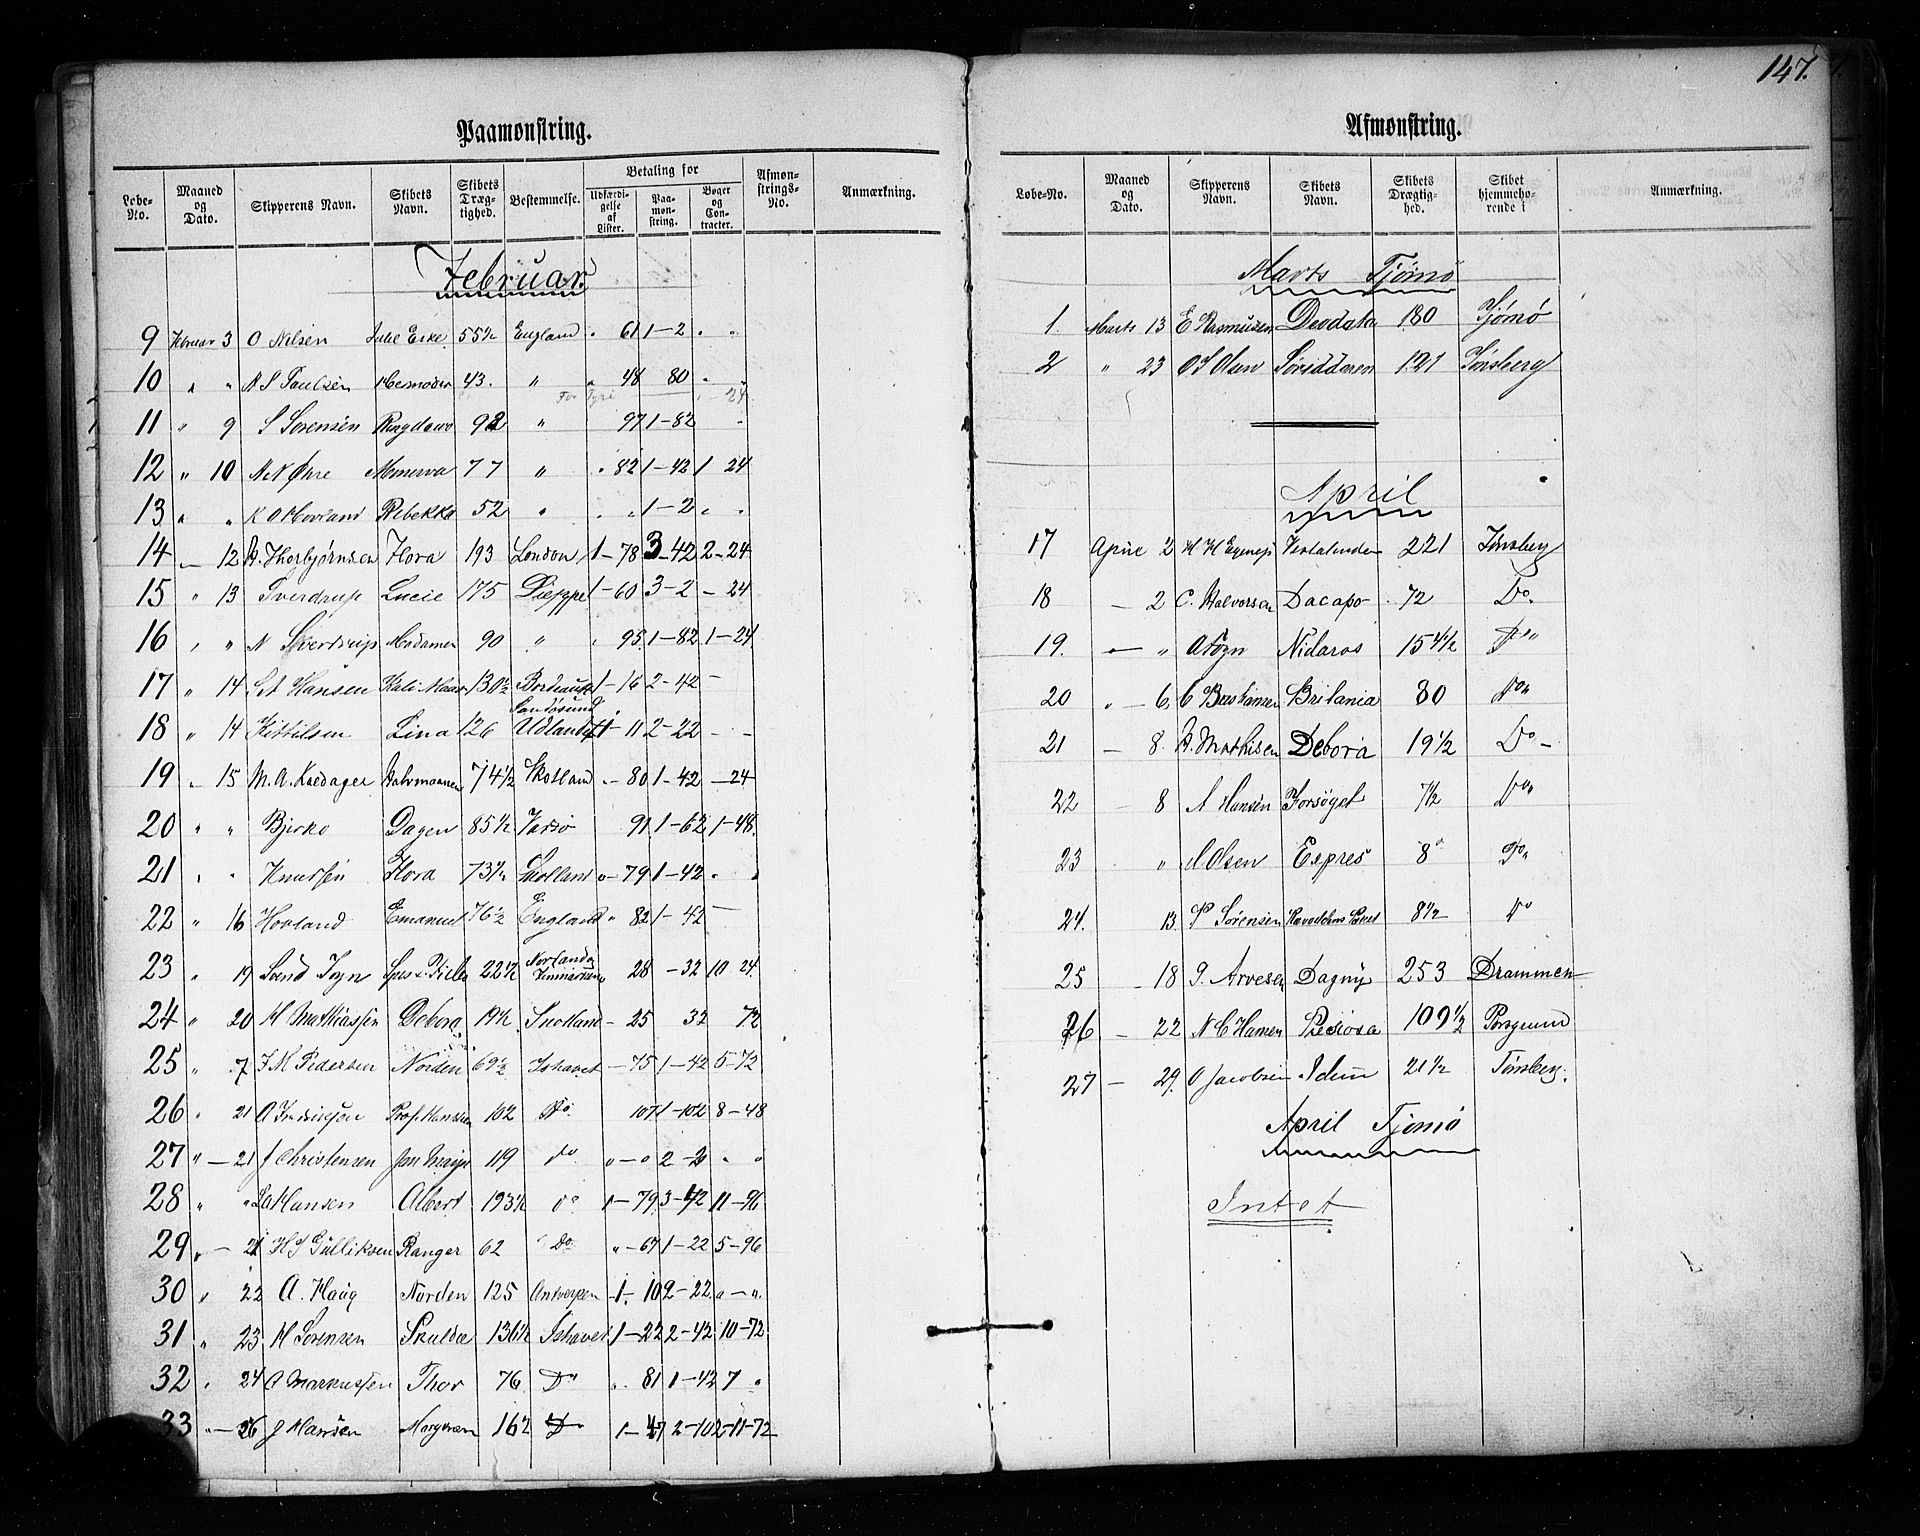 147.
Paamønstring.
Løbe-No.
Maaned og Dato.
Skipperens Navn.
Skibets Navn.
Skibets Dræg-tighed.
Bestemmelse.
Betaling for
Udfærdi-gelse af Lister.
Paa-møn-string.
Bøger og Con-tracter.
Afmøn-strings-No.
Anmærkning.
Februar.
9 Februar 3 O Nilsen 55½ England " 61 1-2 " "
10 " " N S Paulsen 43. " " 48 80 " "
24
11 " 9 S Sørensen 92 " 97 1-82 "
12 " 10 Minerva 77 " " 82 1-42 1 24
13 " " K O Hovland Rebekka 52 " " " 1-2 " "
14 — 12 A. Thorbjørnsen Flora 193 London 1-78 3-42 2-24
15 " 13 Sverdrup Lucie 175 Dieppe 1-60 3-2 - 24
16 " " N Sverdrup Madamen 90 " " 95 1-82 1-24
17 " 14 Hansen 130½ Bordeaux 1-16 2-42 —
Sandøsund
18 " 14 Kittilsen Lina 126 Udlandet 1-11 2-22 - -
19 " 15 M. A. Halvmaanen 74½ Skotland " - 80 1-42 - 24
20 " " Bjerkø Dagen 85½ 91 1-62 1-48
21 " " Knudsen Flora 73½ " - 79 1-42 " "
22 " 16 Hovland Emanuel 76½ England " 82 1-42 —
23 " 19 22½ Norland og 28 - 32 10 24
24 " 20 H Mathiassen Debora 19½ - 25 32 72
25 " 7 F M Pedersen Norden 69½ Ishavet - 75 1-42 5-72
26 " 21 102 Do. 107 1-102 8-48
27 " — 21 J Christensen Jan Mayn 119 do " - " 2-2 " "
28 " " L A Hansen Albert 193½ do 1-79 3-42 11-96
29 " — 21 H S Gulliksen Ranger 62 Do " - 67 1-22 5-96
30 " 22 A. Haug Norden 125 Antverpen 1- 10 2-22 " - "
31 " 23 H Sørensen 136½ Ishavet 1-22 2-42 10-72
32 " 24 O Markussen Thor 76 Do " 81 1-42 7 "
33 " — 26 J Hansen 162 Do 1-47 2-102 11-72
Afmønstring.
Løbe-No.
Maaned og Dato.
Skipperens Navn.
Skibets Navn.
Skibets Drægtig-hed.
Skibet hjemmehø-rende i
Anmærkning.
Marts Tjømø
1. Marts 13 E Rasmusen Deodata 180 Tjømø
2 " 23 O S Olsen 121 Tønsberg
April
17 April 2 Vestalinden 221 Tønsberg
18 — 2 C. Halvorsen Dacapo 72 Do.
19. — " Nidaros 154½ Do "
20 " — 6, Britania 80 Do "
21 — 8. A. Mathisen Debora 19½ Do -
22 — 8 A Hansen Forsøget 7½ Do "
23 " Olsen Expres 8 " Do "
24. 13. P Sørensen 8½ Do
25 - 18 P. Arvesen Dagny 253 Drammen
26 — 22 N C Hansen Preciosa 109½ Porsgrund
27 — 29. O Jacobsen Idun 21½ Tønsberg.
April Tjømø
Intet